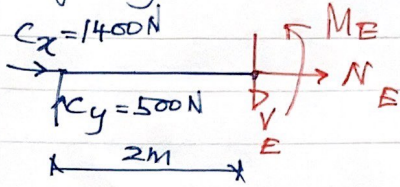 Cx=1400N
ME
N E
Cy=500N
D
V E
2m